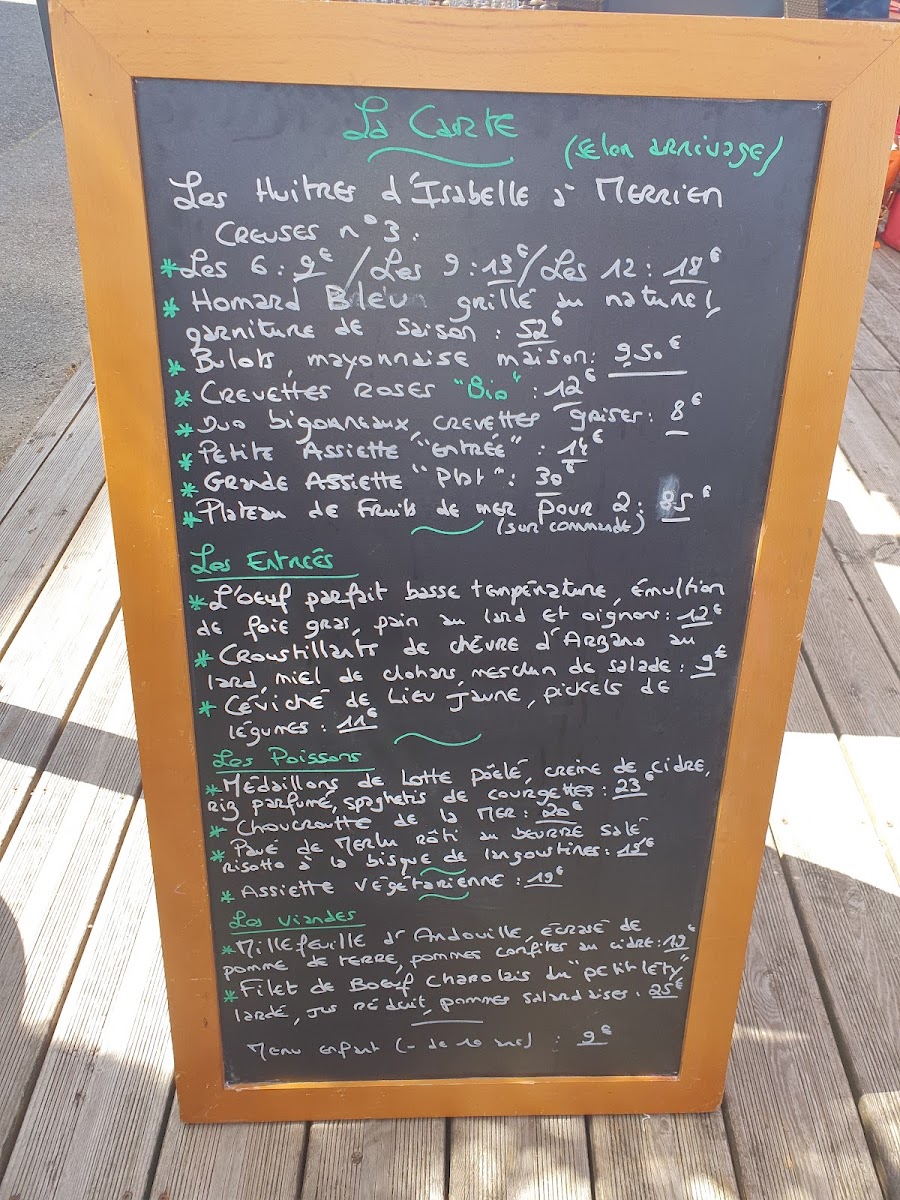 La Carte
(selon arrivage)
Les Huitres d'Isabelle à Merrien
Creuses n°3 :
*Les 6 : 9€ / Les 9 : 13€ / Les 12 : 18€
* Homard Bleu grillé au naturel,
garniture de saison : 52€
* Bulots, mayonnaise maison : 9,50€
* Crevettes roses "Bio" : 12€
* Duo bigorneaux, crevettes grises : 8€
* Petite Assiette "entrée" : 14€
* Grande Assiette "Plat" : 30€
* Plateau de Fruits de mer pour 2 : 85€
(sur commande)
Les Entrées
*L'oeuf parfait basse température, émultion
de foie gras, pain au lard et oignons : 12€
* Croustillants de chèvre d'Arzano au
lard, miel de clohars, mesclun de salade : 9€
* Céviché de Lieu Jaune, pickels de
légumes : 11€
Les Poissons
*Médaillons de Lotte pôêlé, crème de cidre,
riz parfumé, spaghetis de courgettes : 23€
* Choucroutte de la Mer : 20€
* Pavé de Merlu rôti au beurre salé
risotto à la bisque de langoustines : 19€
* Assiette végétarienne : 19€
Les Viandes
*Millefeuille d'Andouille, écrasé de
pomme de terre, pommes confites au cidre : 19€
* Filet de Boeuf Charolais du "petit léty"
lardé, jus réduit, pommes salardaises : 25€
Menu enfant (- de 10 ans) : 9€